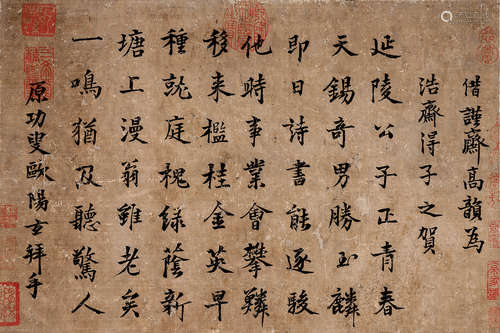 偕謹齋高韻為
浩齋得子之賀
延陵公子正青春
天錫奇男勝玉麟
即日詩書能逐駿
他時事業會攀鱗
移来檻桂金英早
種就庭槐綠蔭新
塘上漫翁雖老矣
一鳴猶及聽驚人
原功叟歐陽玄拜手